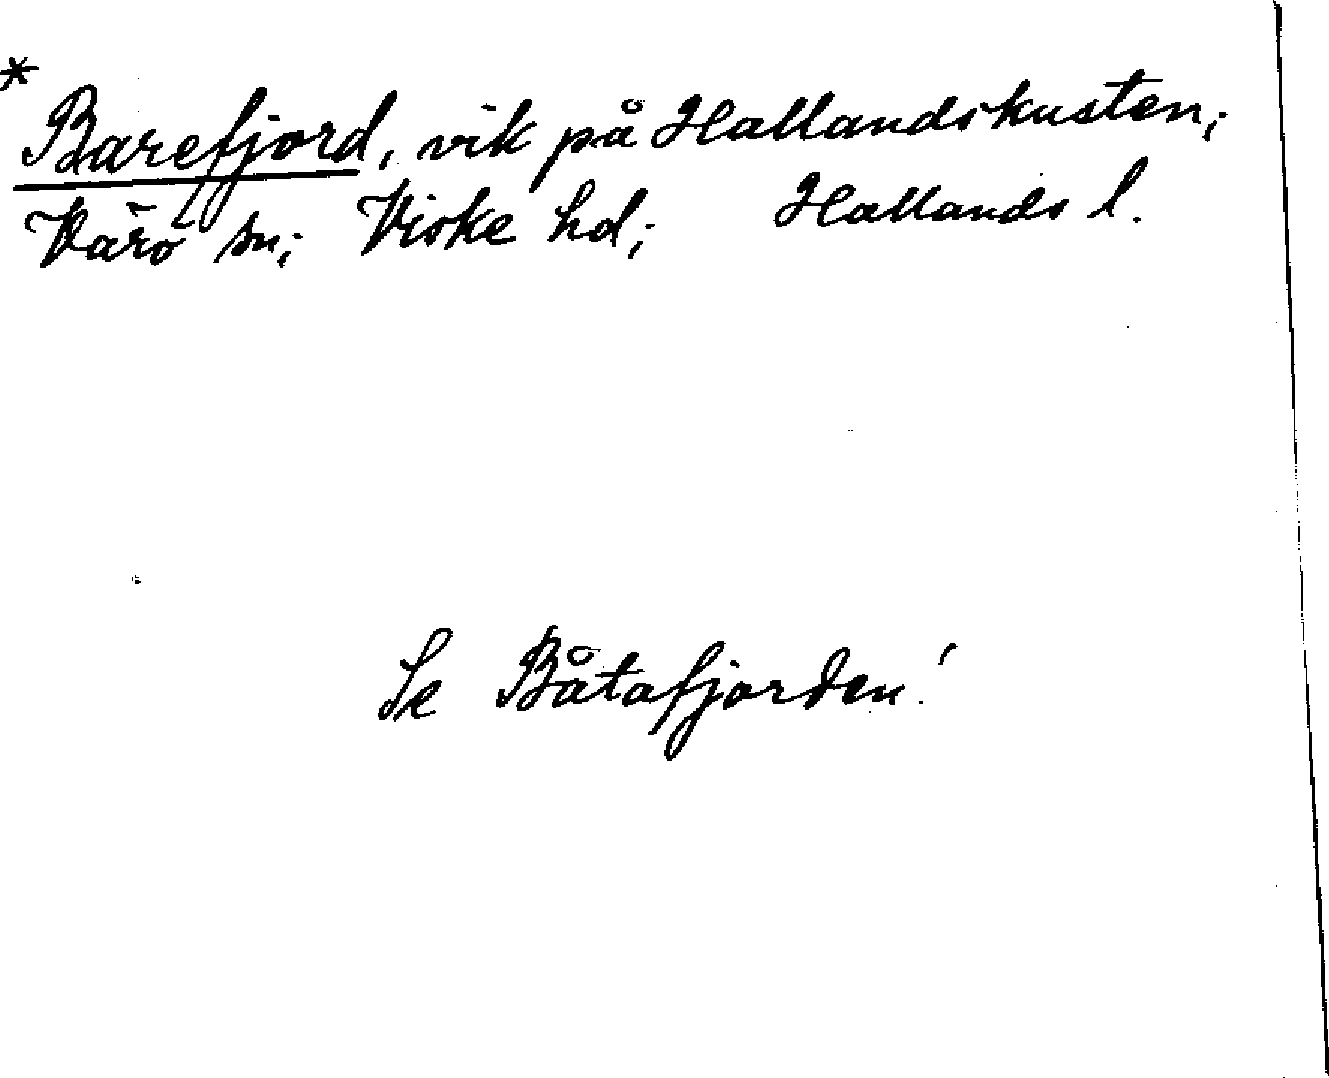 * Barefjord, vik på Hallandskusten;
Värö sn; Viske hd; Hallands l.
Se Båtafjorden!